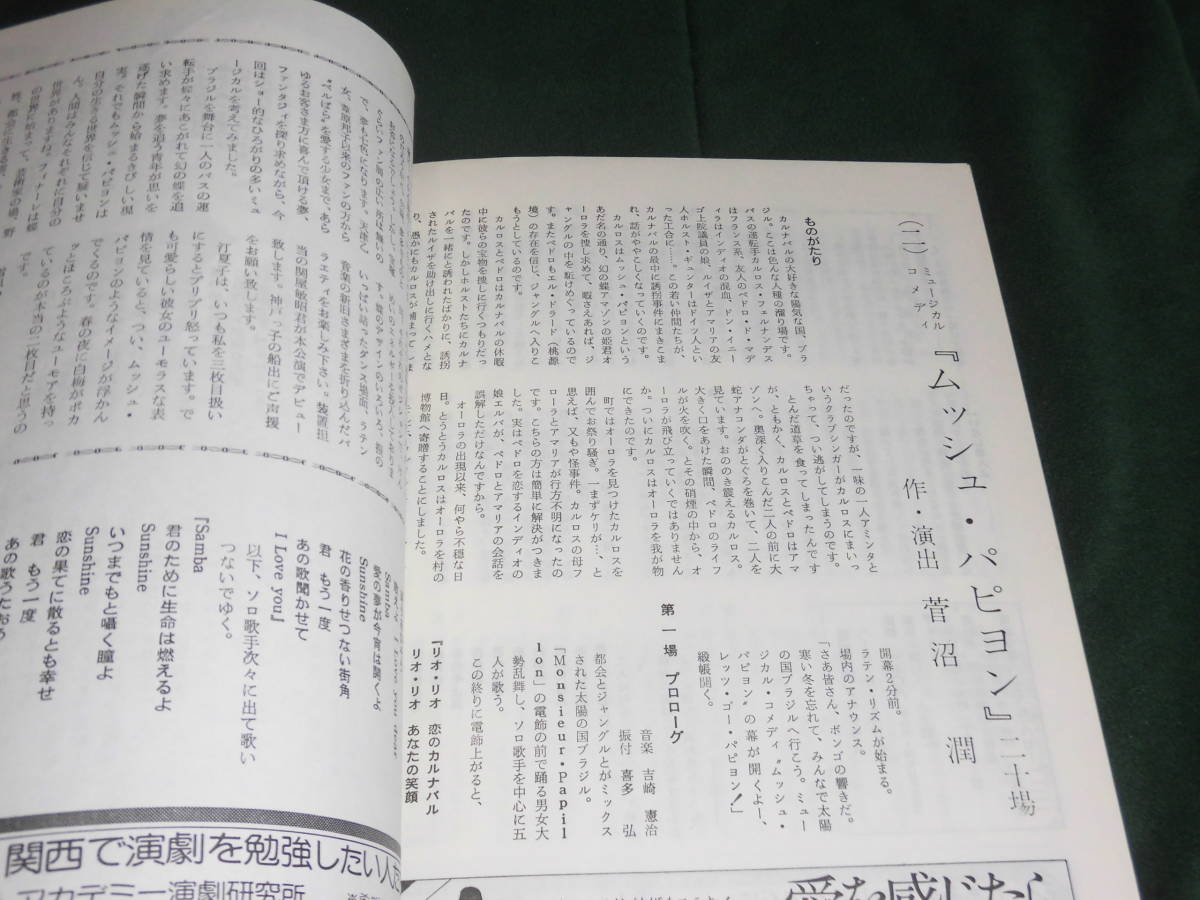 (二)ミュージカルコメディ『ムッシュ・パピヨン』二十場
作・演出 菅沼 潤
ものがたり
カルナバルの大好きな陽気な国、ブラ
ジル。ここは色んな人種の溜り場です。
バスの運転手カルロス・フェルナンデス
はフランス系、友人のペドロ・ド・マデ
イラはインディオの混血、ドン・イニー
ゴ上院議員の娘、ルイザとアマリアの友
人ホルスト・ギュンターはドイツ人とい
った工合に……。この若い仲間たちが、
カルナバルの最中に誘拐事件にまきこま
れ、話がややこしくなっていくのです。
カルロスはムッシュ・パピヨンという
あだ名の通り、幻の蝶アマゾンの姫君オ
ーロラを捜し求めて、暇さえあれば、ジ
ャングルの中を駈けめぐっているので
す。またペドロもエル・ドラード(桃源
境)の存在を信じ、ジャングルへ入りこ
もうとしているのです。
カルロスとペドロはカルナバルの休暇
中に彼らの宝物を捜しに行くつもりだっ
たのです。しかしホルストたちにカルナ
バルを一緒にと誘われたばかりに、誘拐
されたルイザを助け出しに行くハメとな
り、愚かにもカルロスが捕まってしま
だったのですが、一味の一人アミンタと
いうクラブシンガーがカルロスにまいっ
ちゃって、つい逃がしてしまうのです。
とんだ道草を食ってしまったんです
が、ともかく、カルロスとペドロはアマ
ゾンへ。奥深く入りこんだ二人の前に大
蛇アナコンダがとぐろを巻いて、二人を
見ています。おののき震えるカルロス。
大きく口をあけた瞬間、ペドロのライフ
ルが火を吹く。とその硝煙の中から、オ
ーロラが飛び立っていくではありません
か。ついにカルロスはオーロラを我が物
にできたのです。
町ではオーロラを見つけたカルロスを
囲んでお祭り騒ぎ。一まずケリが…、と
思えば、又もや怪事件。カルロスの母フ
ローラとアマリアが行方不明になったの
です。こちらの方は簡単に解決がつきま
した。実はペドロを恋するインディオの
娘エルバが、ペドロとアマリアの会話を
誤解しただけなんですから。
オーロラの出現以来、何やら不穏な日
日。とうとうカルロスはオーロラを村の
博物館へ寄贈することにしました。
開幕2分前。
ラテン・リズムが始まる。
場内のアナウンス。
「さあ皆さん、ボンゴの響きだ。
寒い冬を忘れて、みんなで太陽
の国ブラジルへ行こう。ミュー
ジカル・コメディ〝ムッシュ・
パピヨン〟の幕が開くよー、
レッツ・ゴー・パピヨン!」
緞帳開く。
第一場 プロローグ
音楽 吉崎 憲治
振付 喜多 弘
都会とジャングルとがミックス
された太陽の国ブラジル。
「Monsieur・Papil
lon」の電飾の前で踊る男女大
勢乱舞し、ソロ歌手を中心に五
人が歌う。
この終りに電飾上がると、
『リオ・リオ 恋のカルナバル
リオ・リオ あなたの笑顔
で、夢も七色になります。天津乙
女、葦原邦子以来のファンの方から
〝ベルばら〟を愛する少女まで、あら
ゆるお客さま方に喜んで頂ける夢、
ファンタジィを探り求めながら、今
回はショー的なひろがりの多いミュ
ージカルを考えてみました。
ブラジルを舞台に一人のバスの運
転手が蝶々にあこがれて幻の蝶を追
い求めます。夢を追う青年が思いを
遂げた瞬間から始まるきびしい現
実。それでもムッシュ・パピヨンは
自分の生きる世界を信じて疑いませ
ん。人間はみんなそれぞれに自分の
世界がありますね。フィナーレは蝶
の世界に始まって、芸術家の場、野
いっぱい詰ったダンス場面、ラテン
音楽の新旧さまざまを折り込んだバ
ラエティをお楽しみ下さい。装置担
当の関屋敏昭君が本公演でデビュー
致します。神戸っ子の船出にご声援
をお願い致します。
汀夏子は、いつも私を三枚目扱い
にするとプリプリ怒っています。で
も可愛らしい彼女のユーモラスな表
情を見ていると、つい、ムッシュ・
パピヨンのようなイメージが浮かん
でくるのです。春の夜に白梅がポカ
ッとほころぶようなユーモアを持っ
ているのが本当の二枚目だと思うの
です。
Samba
愛の夢が今宵は開くよ
Sunshine
花の香りせつない街角
君 もう一度
あの歌聞かせて
I Love you』
以下、ソロ歌手次々に出て歌い
つないでゆく。
『Samba
君のために生命は燃えるよ
Sunshine
いつまでもと囁く瞳よ
Sunshine
恋の果てに散るとも幸せ
君 もう一度
あの歌うたおう
関西で演劇を勉強したい人だ
アカデミー演劇研究所
愛を感じたら